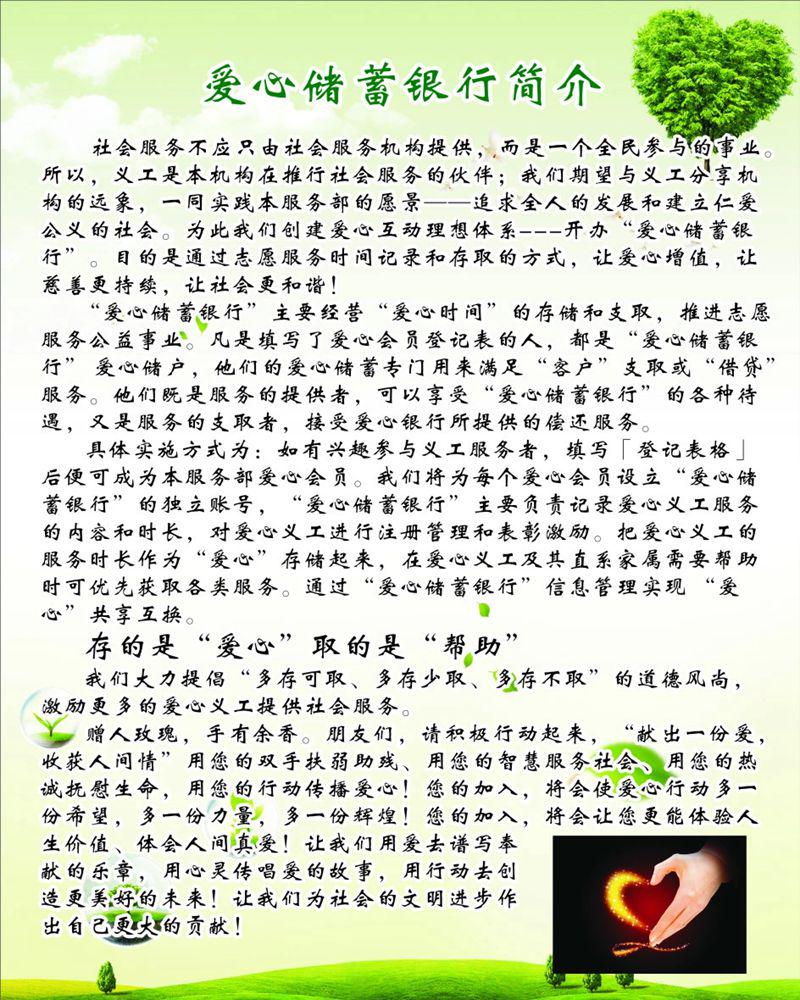 爱心储蓄银行简介
社会服务不应只由社会服务机构提供，而是一个全民参与的事业。
所以，义工是本机构在推行社会服务的伙伴；我们期望与义工分享机
构的远象，一同实践本服务部的愿景——追求全人的发展和建立仁爱
公义的社会。为此我们创建爱心互动理想体系---开办“爱心储蓄银
行”。目的是通过志愿服务时间记录和存取的方式，让爱心增值，让
慈善更持续，让社会更和谐！
“爱心储蓄银行”主要经营“爱心时间”的存储和支取，推进志愿
服务公益事业。凡是填写了爱心会员登记表的人，都是“爱心储蓄银
行”爱心储户，他们的爱心储蓄专门用来满足“客户”支取或“借贷”
服务。他们既是服务的提供者，可以享受“爱心储蓄银行”的各种待
遇，又是服务的支取者，接受爱心银行所提供的偿还服务。
具体实施方式为：如有兴趣参与义工服务者，填写「登记表格」
后便可成为本服务部爱心会员。我们将为每个爱心会员设立“爱心储
蓄银行”的独立账号，“爱心储蓄银行”主要负责记录爱心义工服务
的内容和时长，对爱心义工进行注册管理和表彰激励。把爱心义工的
服务时长作为“爱心”存储起来，在爱心义工及其直系家属需要帮助
时可优先获取各类服务。通过“爱心储蓄银行”信息管理实现“爱
心”共享互换。
存的是“爱心”取的是“帮助”
我们大力提倡“多存可取、多存少取、多存不取”的道德风尚，
激励更多的爱心义工提供社会服务。
赠人玫瑰，手有余香。朋友们，请积极行动起来，“献出一份爱，
收获人间情”用您的双手扶弱助残、用您的智慧服务社会、用您的热
诚抚慰生命，用您的行动传播爱心！您的加入，将会使爱心行动多一
份希望，多一份力量，多一份辉煌！您的加入，将会让您更能体验人
生价值、体会人间真爱！让我们用爱去谱写奉
献的乐章，用心灵传唱爱的故事，用行动去创
造更美好的未来！让我们为社会的文明进步作
出自己更大的贡献！